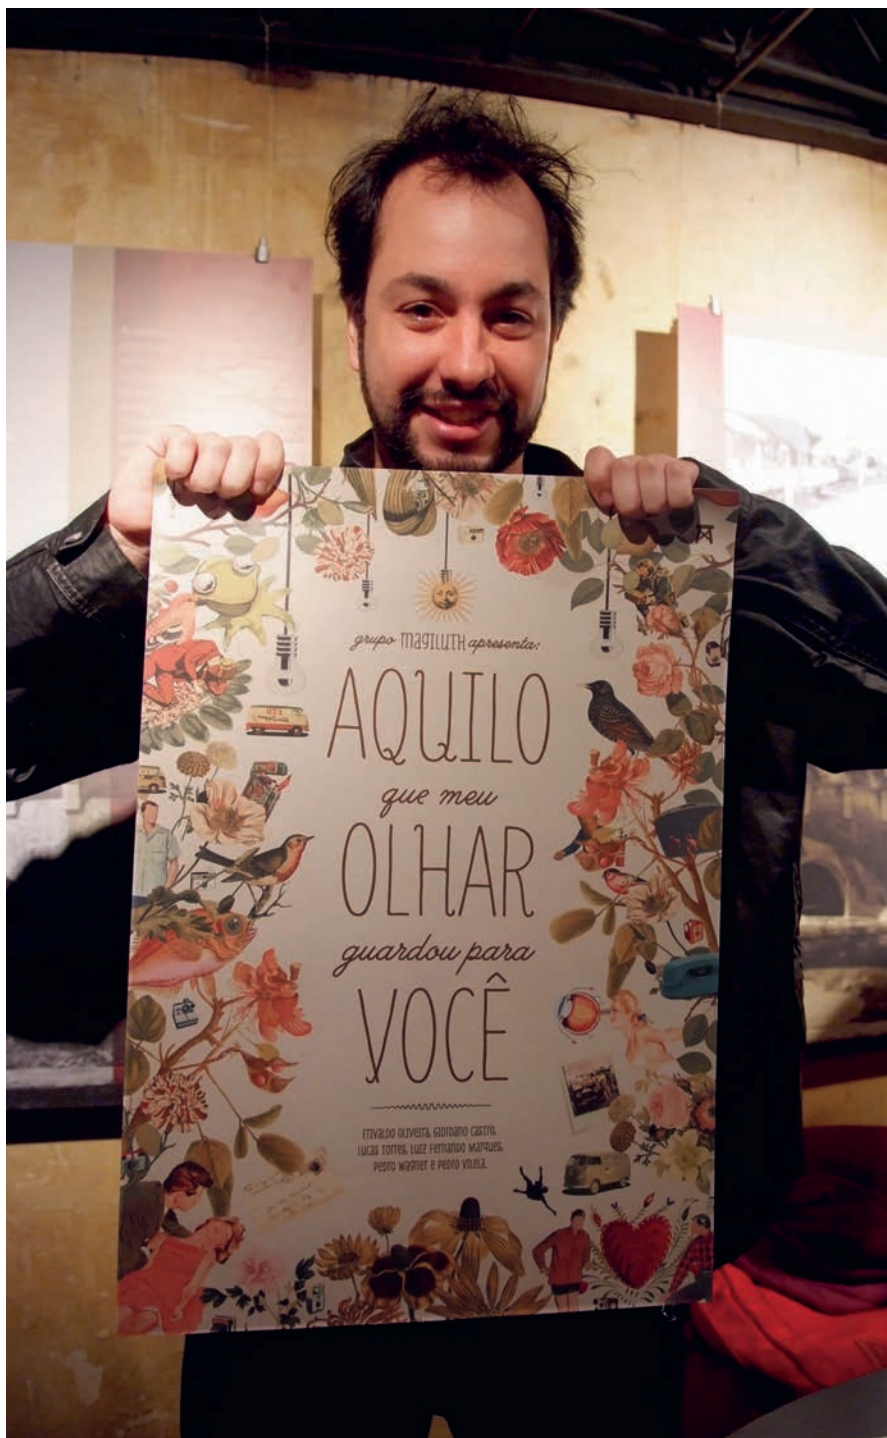 grupo MAGILUTH apresenta:
AQUILO
que meu
OLHAR
guardou para
VOCÊ
ERIVALDO OLIVEIRA, GIORDANO CASTRO,
LUCAS TORRES, LUIZ FERNANDO MARQUES,
PEDRO WAGNER E PEDRO VILELA.